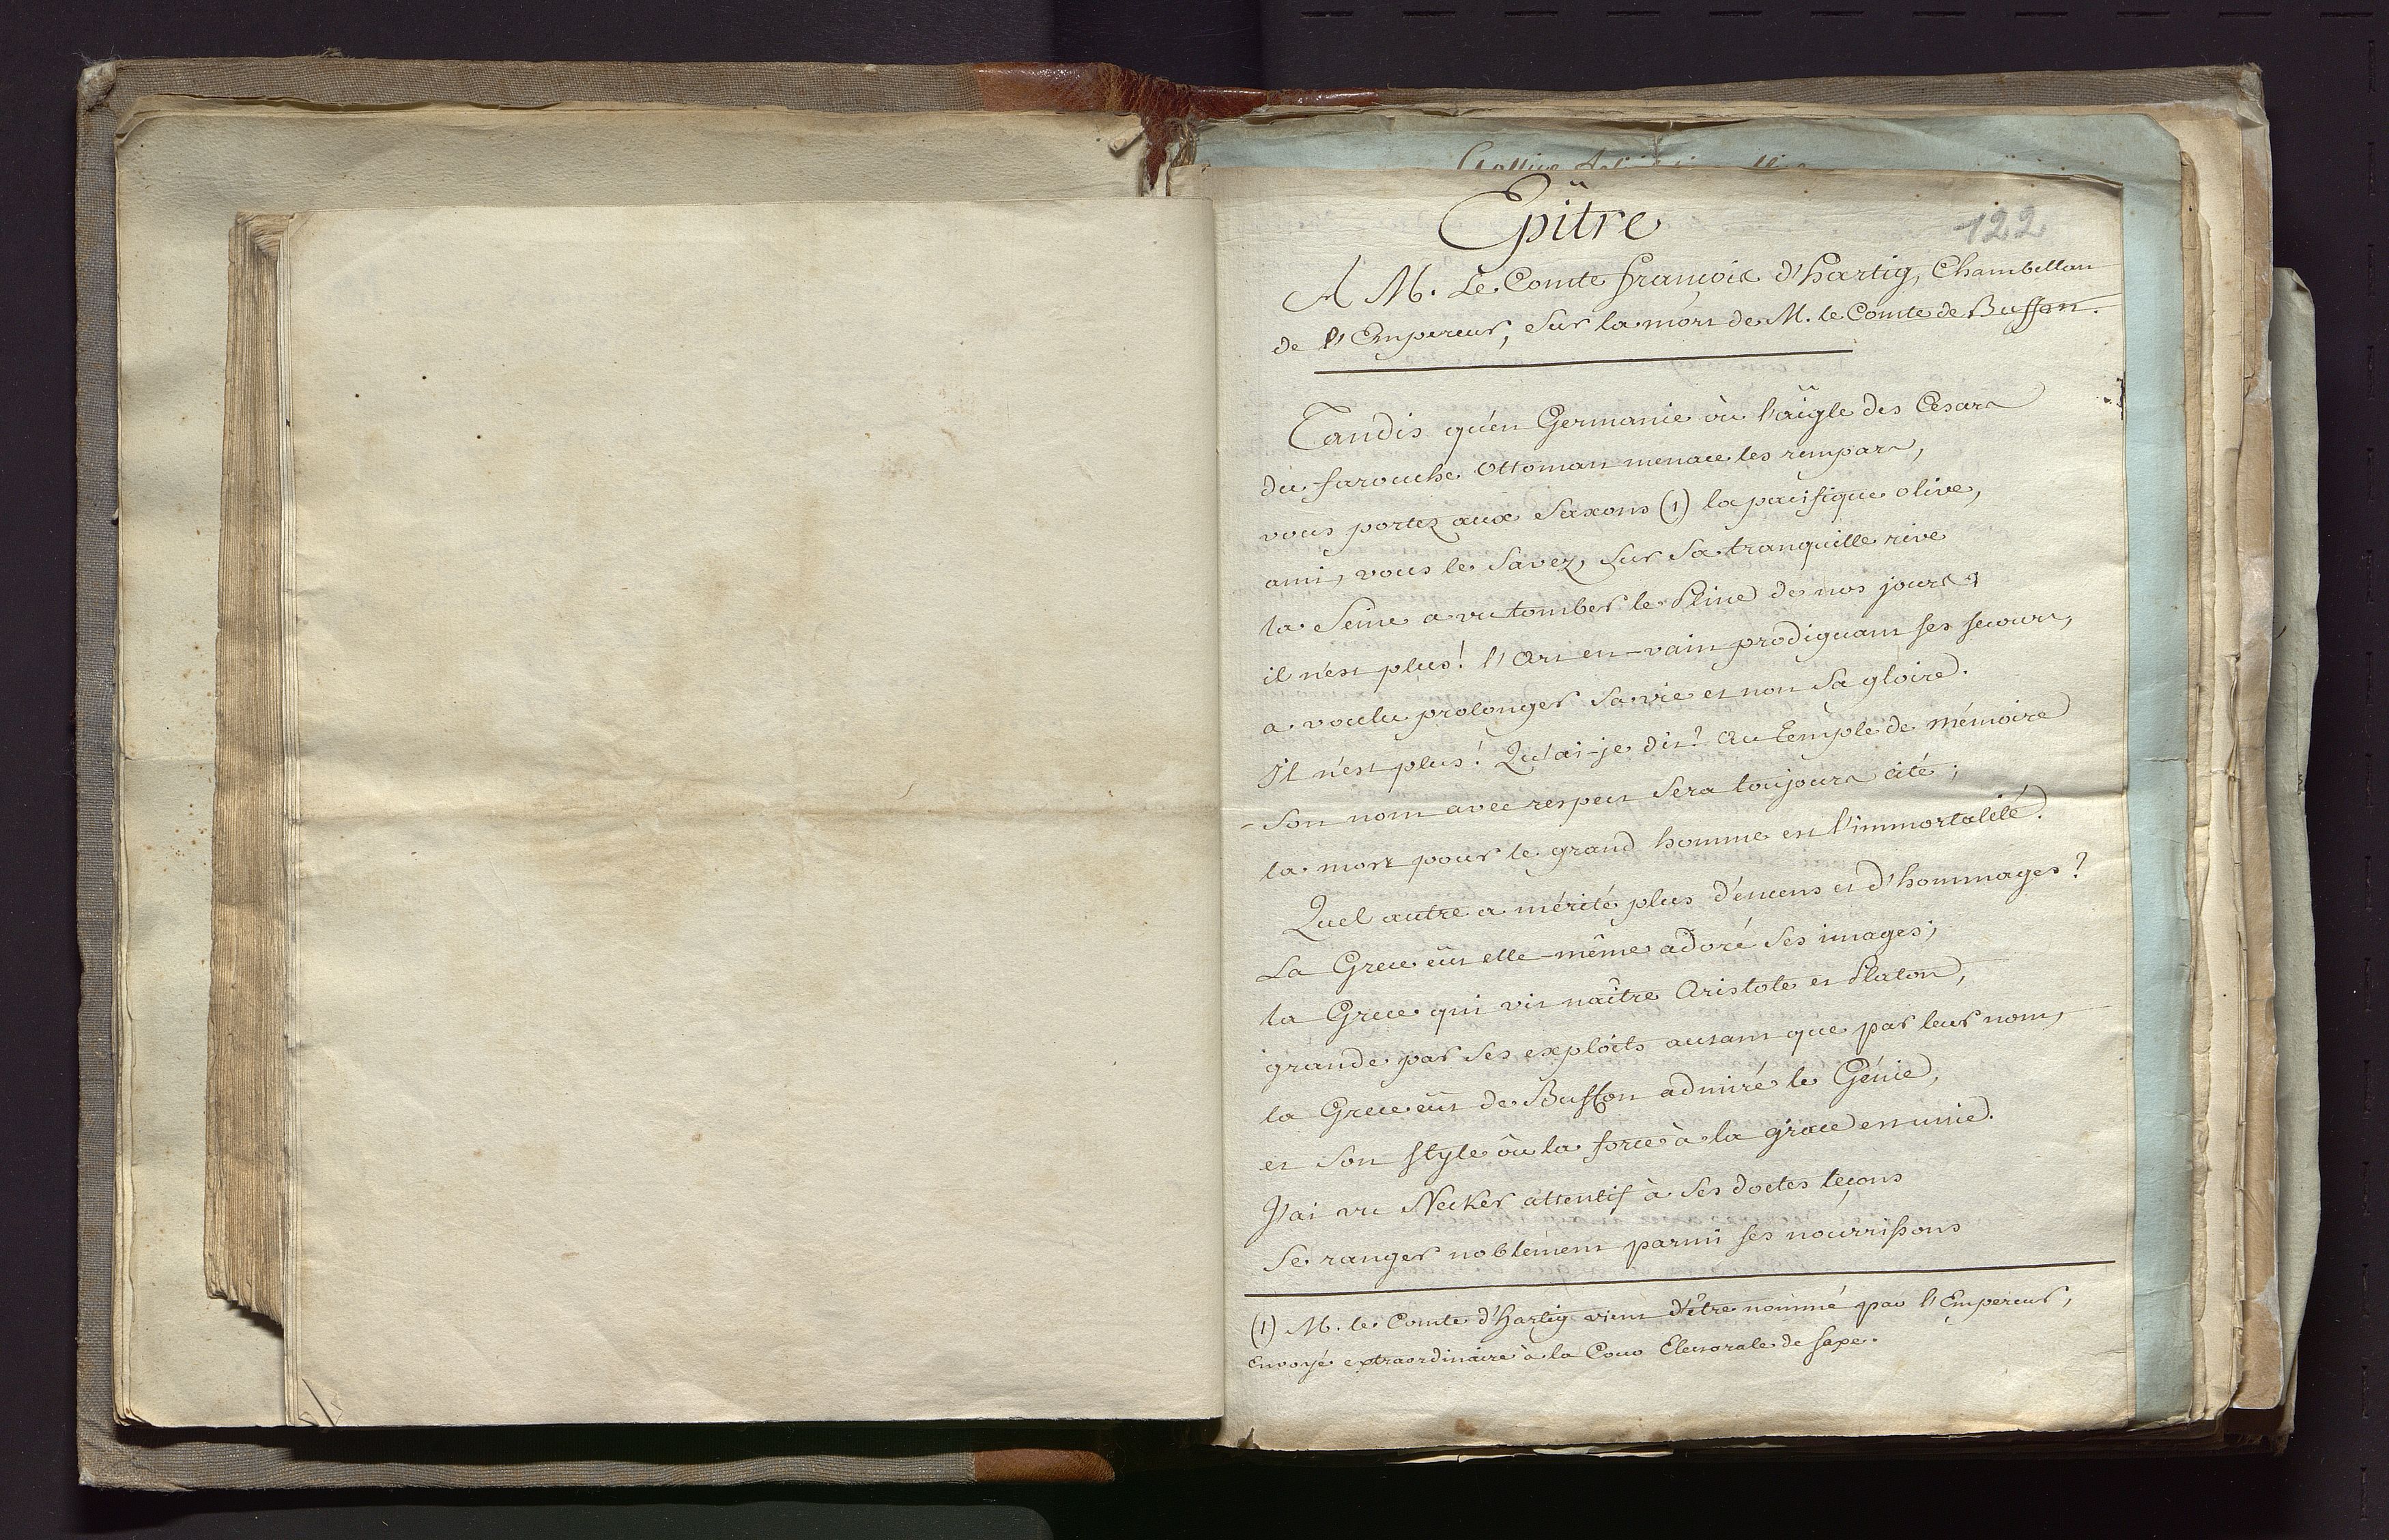 Epître
122
A M. Le Comte françois d'hartig, Chambellan
de l'Empereur, Sur la mort de M. le Comte de Buffon.
Tandis qu'en Germanie où l'aigle des Césars
du farouche Ottoman menace les rempars,
vous portez aux Saxons (1) la pacifique olive,
ami, vous le Savez, Sur Sa tranquille rive
la Seine a vu tomber le Pline de nos jours;
il n'est plus! l'Art en-vain prodiguant ses secours,
a voulu prolonger Sa vie et non Sa gloire.
Il n'est plus! Qu'ai-je dit? Au Temple de mémoire
Son nom avec respect Sera toujours cité;
la mort pour le grand homme est l'immortalité.
Quel autre a mérité plus d'encens et d'hommages?
La Grece eût elle-même adoré Ses images;
la Grece qui vit naître Aristote et Platon,
grande par Ses exploits autant que par leur nom,
la Grece eût de Buffon admiré le Génie,
et Son style où la force à la grace est unie.
J'ai vu Necker attentif à Ses doctes leçons
Se ranger noblement parmi ses nourrissons
(1) M. le Comte d'hartig vient d'être nommé par l'Empereur,
Envoyé extraordinaire à la Cour Electorale de saxe.